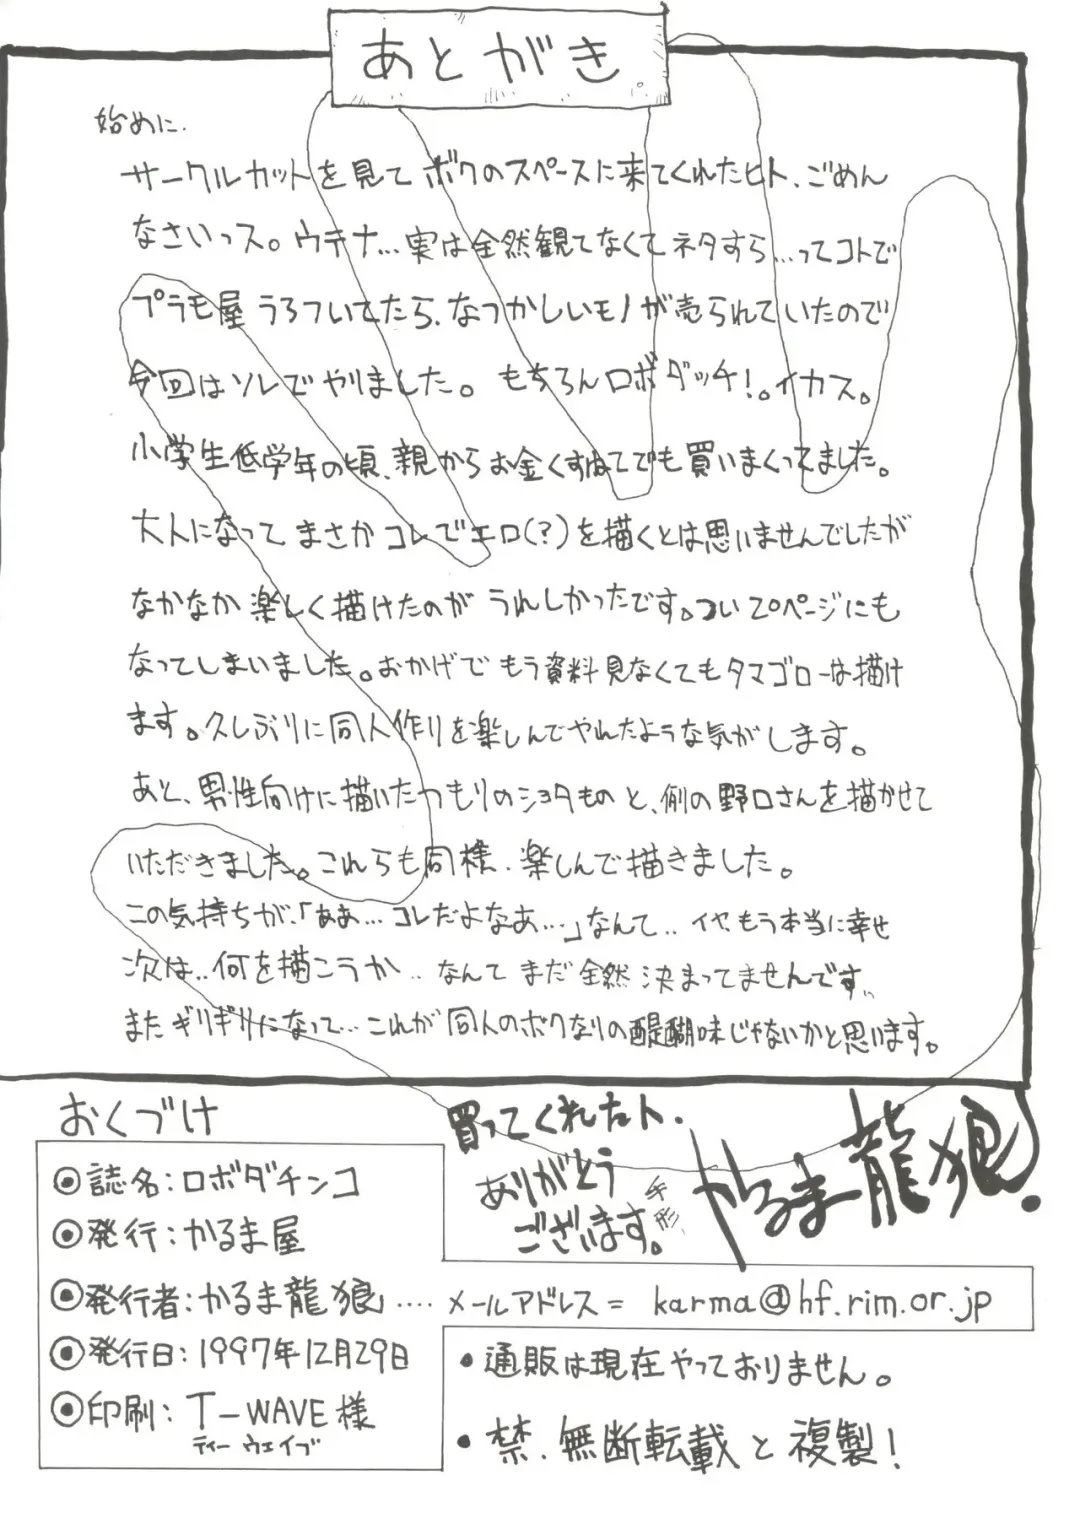 あとがき
始めに.
サークルカットを見てボクのスペースに来てくれたヒト、ごめん
なさいっス。ウテナ…実は全然観てなくてネタすら…ってコトで
プラモ屋うろついてたら、なつかしいモノが売られていたので
今回はソレでやりました。もちろんロボダッチ!。イカス。
小学生低学年の頃、親からお金くすねてでも買いまくってました。
大人になってまさかコレでエロ(?)を描くとは思いませんでしたが
なかなか楽しく描けたのがうれしかったです。つい20ページにも
なってしまいました。おかげでもう資料見なくてもタマゴローは描け
ます。久しぶりに同人作りを楽しんでやれたような気がします。
あと、男性向けに描いたつもりのショタものと、例の野口さんを描かせて
いただきました。これらも同様、楽しんで描きました。
この気持ちが、「ああ…コレだよなあ…」なんて‥イヤもう本当に幸せ
次は‥何を描こうか‥なんてまだ全然決まってませんです〟
またギリギリになって…これが同人のボクなりの醍醐味じゃないかと思います。
買ってくれたト.
ありがとう
ございます。
手形、
かるま龍狼!
おくづけ
◉誌名:ロボダチンコ
◉発行:かるま屋
◉発行者:かるま龍狼」‥‥メールアドレス= karma@hf.rim.or.jp
◉発行日:1997年12月29日
◉印刷: T-WAVE 様
ティー ウェイブ
• 通販は現在やっておりません。
• 禁.無断転載と複製!